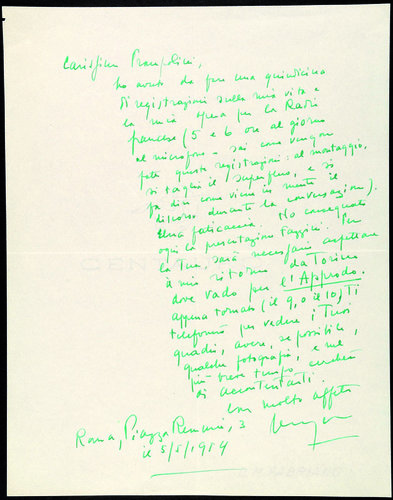 Carissimo Prampolini,
ho avuto da fare una quindicina
di registrazioni sulla mia vita e
la mia opera per la Radio
francese (5 e 6 ore al giorno
al microfono - sai come vengon
fatte queste registrazioni: al montaggio,
si taglia il superfluo, e si
fa dir come viene in mente il
discorso durante la conversazione).
Una faticaccia. Ho consegnato
oggi la presentazione Fazzini. Per
la Tua, sarà necessario aspettare
il mio ritorno da Torino
dove vado per l'Approdo.
Appena tornato (il 9, o il 10) Ti
telefono per vedere i Tuoi
quadri, avere, se possibile,
qualche fotografia, e nel
più breve tempo cercherò
di accontentarti.
Con molto affetto
Roma, Piazza Remuria, 3
il 5/5/1954